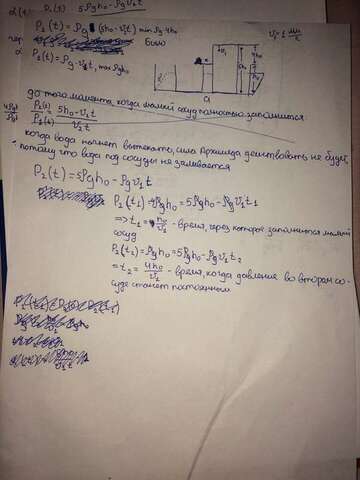 P₂(t) = ρg(5h₀ - v₁t) min ρg4h₀
v₁ = 1 мм/с
было
P₂(t) = ρg·v₁t, max ρgh₀
до того момента, когда малый сосуд полностью заполнится
5h₀ - v₁t
v₂t
когда вода начнет вытекать, сила Архимеда действовать не будет,
потому что вода под сосуды не заливается
P₂(t) = 5ρgh₀ - ρgv₁t
P₂(t₁) = 4ρgh₀ = 5ρgh₀ - ρgv₁t₁
⇒ t₁ = h₀/v₁ - время, через которое заполнится малый
сосуд
P₂(t₂) = ρgh₀ = 5ρgh₀ - ρgv₁t₂
= t₂ = 4h₀/v₁ - время, когда давление во втором со-
суде станет постоянным